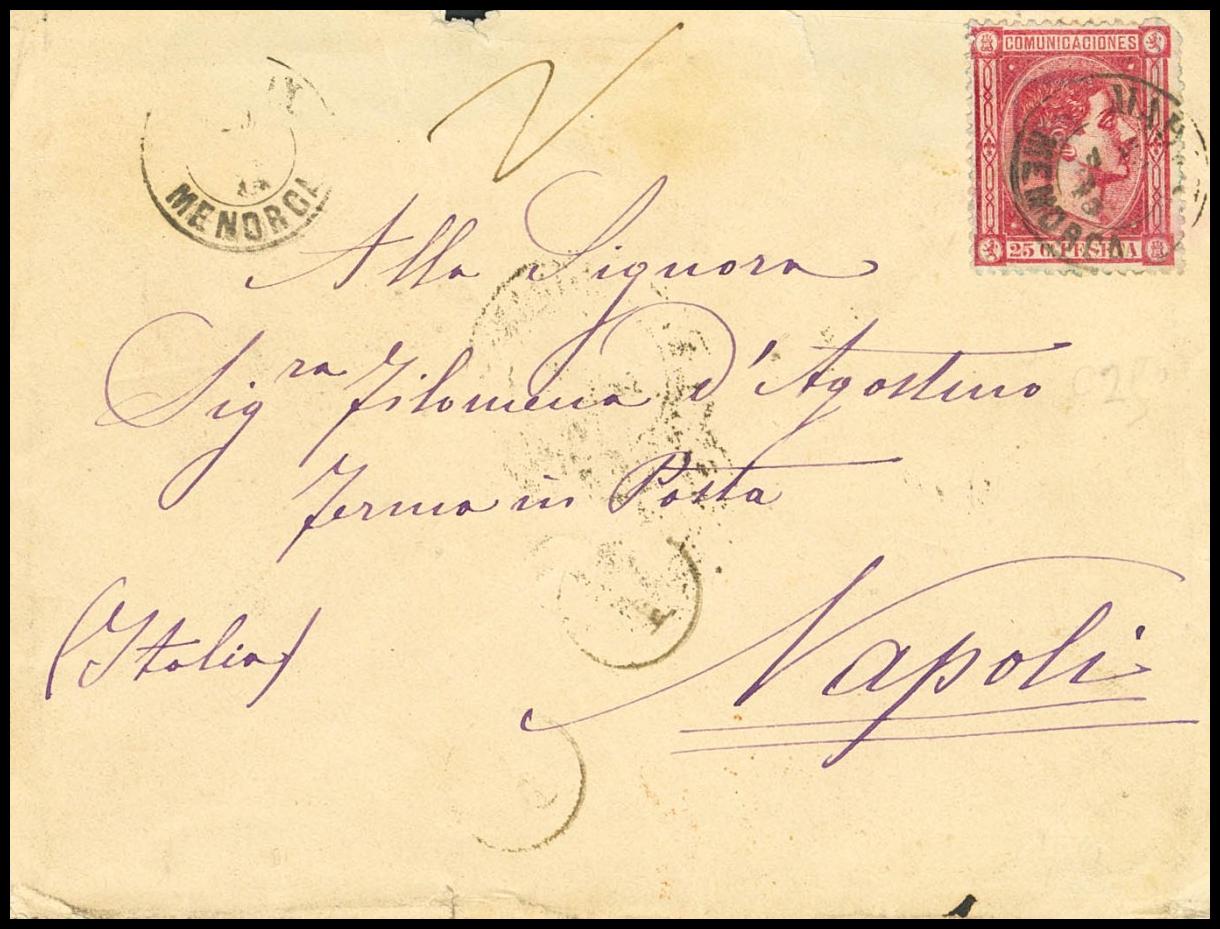 COMUNICACIONES
MENORCA
MENORCA
25 C. PESETA
Alla Signora
Sig.ra Filomena d'Agostino
Ferma in Posta
(Italia)
Napoli